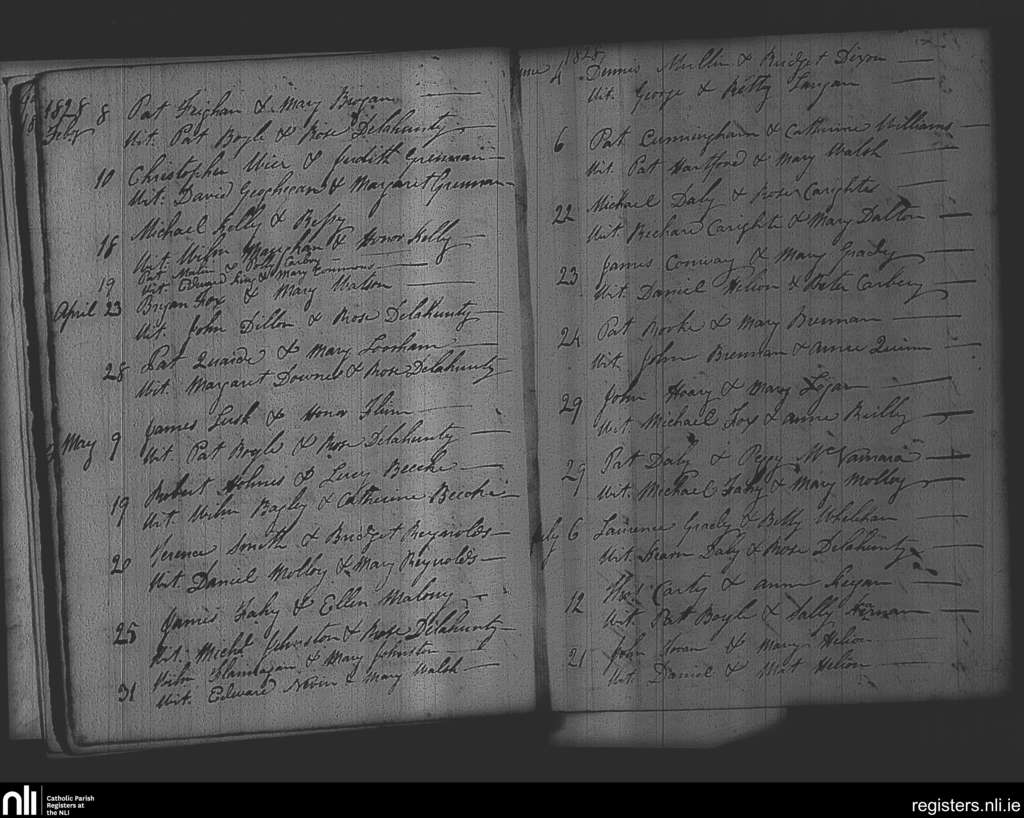 1828
Feby 8 Pat Feighan & Mary Brogan
Wit. Pat Boyle & Rose Delahunty
10 Christopher Wier & Judith Grennan
Wit. David Geoghegan & Margaret Grennan
18 Michael Kelly & Bessy
Wit. Willm & Honor Kelly
19 Pat & Carboy
Wit. Edward King & Mary
April 23 Bryan Fox & Mary Watson
Wit. John Dillon & Rose Delahunty
28 Pat Quaide & Mary
Wit. Margaret Downes & Rose Delahunty
May 9 James Lusk & Honor Flinn
Wit. Pat Boyle & Rose Delahunty
19 Robert Holmes & Lucy Beeche
Wit. Willm Bagley & Catherine Beeche
20 Terence Smith & Bridget Reynolds
Wit. Daniel Molloy & Mary Reynolds
25 James Fahy & Ellen Malony
Wit. Michl Johnston & Rose Delahunty
31 Willm Flannagan & Mary Johnston
Wit. Edward Nevin & Mary Walsh
1828
June 4 Dennis Mullen & Bridget Dixon
Wit. George & Kitty Langan
6 Pat Cunningham & Catherine Williams
Wit. Pat Hartford & Mary Walsh
22 Michael Daly & Rose
Wit. & Mary Dalton
23 James Conway & Mary Grady
Wit. Daniel Helion & Peter Carbery
24 Pat Rorke & Mary Brennan
Wit. John Brennan & Anne Quinn
29 John Hoary & Mary Logan
Wit. Michael Fox & Anne Reilly
29 Pat Daly & Peggy McNamara
Wit. Michael Fahy & Mary Molloy
July 6 Laurence Grady & Betty Whelehan
Wit. Daly & Rose Delahunty
12 Thos Carty & Anne Regan
Wit. Pat Boyle & Sally
21 John & Mary Helion
Wit. Daniel & Mat Helion
nli
Catholic Parish
Registers at
the NLI
registers.nli.ie